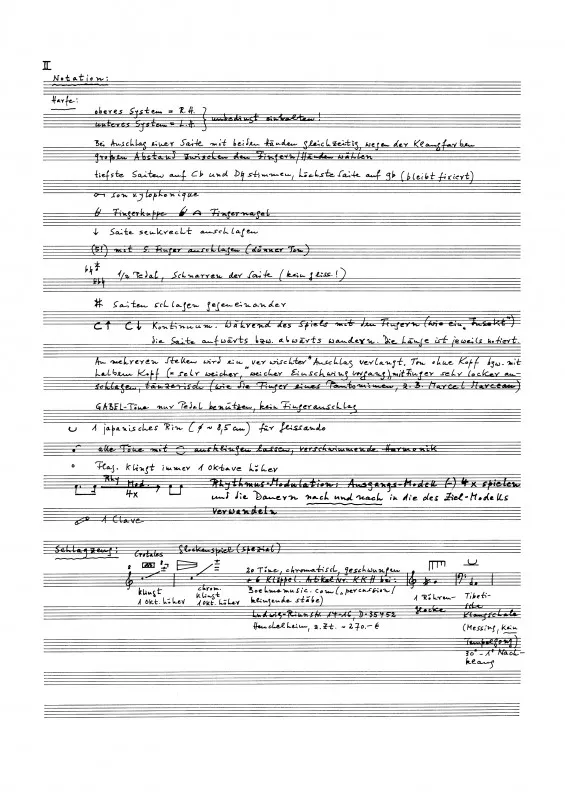 II
Notation:
Harfe:
oberes System = R.H.
unteres System = L.H.
unbedingt einhalten!
Bei Anschlag einer Saite mit beiden Händen gleichzeitig, wegen der Klangfarben
großen Abstand zwischen den Fingern/Händen wählen
tiefste Saiten auf Cb und D♮ stimmen, höchste Saite auf gb (bleibt fixiert)
son xylophonique
Fingerkuppe Fingernagel
↓ Saite senkrecht anschlagen
(5!) mit 5. Finger anschlagen (dünner Ton)
1/2 Pedal, Schnarren der Saite (kein gliss.!)
# Saiten schlagen gegeneinander
C↑ C↓ Kontinuum. Während des Spiels mit den Fingern (wie ein "Insekt")
die Saite aufwärts bzw. abwärts wandern. Die Länge ist jeweils notiert.
An mehreren Stellen wird ein "verwischter" Anschlag verlangt. Ton ohne Kopf bzw. mit
halbem Kopf (= sehr weicher, "weicher Einschwingvorgang") mit Finger sehr locker an-
schlagen, tänzerisch (wie die Finger eines Pantomimen, z.B. Marcel Marceau)
GABEL-Töne nur Pedal benützen, kein Fingeranschlag
1 japanisches Rin (∅ ~ 8,5 cm) für glissando
alle Töne mit ausklingen lassen, verschwimmende Harmonik
° Flag. klingt immer 1 Oktave höher
Rhy Mod. 4x
Rhythmus-Modulation: Ausgangs-Modell (-) 4x spielen
und die Dauern nach und nach in die des Ziel-Modells
verwandeln
1 Clave
Schlagzeug:
Crotales
klingt
1 Okt. höher
Glockenspiel (spezial)
chrom.
klingt
1 Okt. höher
20 Töne, chromatisch, geschwungen
+ 6 Klöppel. Artikel Nr. KKH bei:
Boehmemusic.com (percussion/
klingende Stäbe)
Ludwig-Rinnstr. 14-16, D-35452
Heuchelheim, z.Zt. - 270.- €
1 Röhren-
glocke
Tibeti-
sche
Klangschale
(Messing, kein
Tempelgong)
30"-1' Nach-
klang